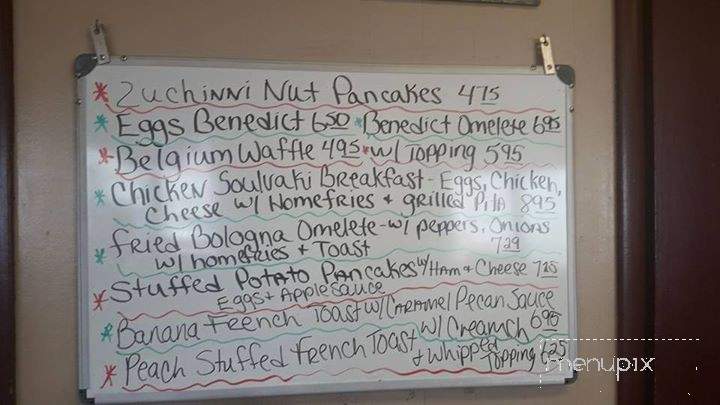 * Zuchinni Nut Pancakes 4 75
* Eggs Benedict 6 50 * Benedict Omelete 6 95
* Belgium Waffle 4 95 * w/ Topping 5 95
* Chicken Soulvaki Breakfast - Eggs, Chicken,
Cheese w/ Homefries + grilled Pita 8 95
* Fried Bologna Omelete - w/ peppers, Onions
w/ homefries + Toast 7 29
* Stuffed Potato Pancakes w/ Ham + Cheese 7 25
Eggs + Applesauce
* Banana French Toast w/ Caramel Pecan Sauce 6 95
* Peach Stuffed French Toast w/ Creamch
+ Whipped Topping 6 25
menupix